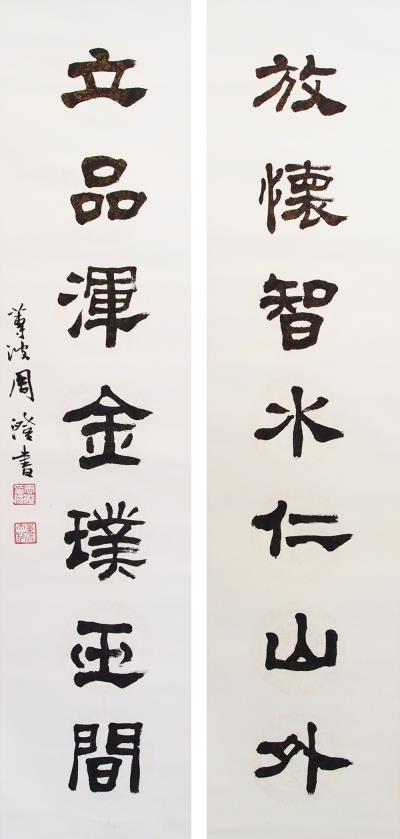 放懷智水仁山外
立品渾金璞玉間
蓴波周澄書